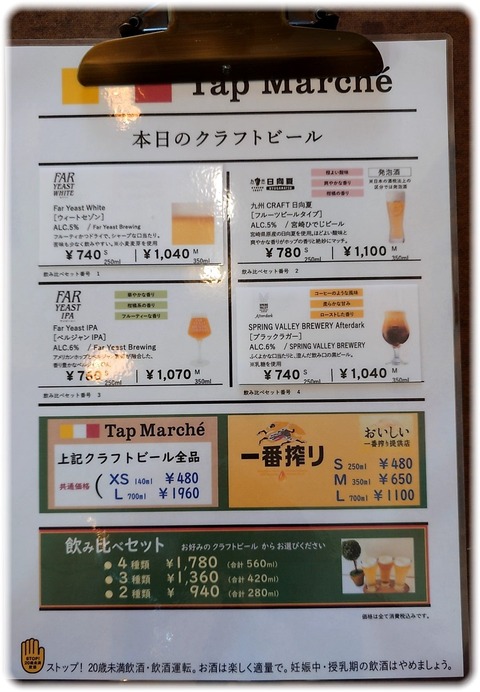 Tap Marché
本日のクラフトビール
FAR
YEAST
WHITE
Far Yeast White
[ウィートセゾン]
ALC.5% / Far Yeast Brewing
フルーティかつドライで、シャープな口当たり。
苦味も少なく飲みやすい。※小麦麦芽を使用
¥740 S 250ml ¥1,040 M 350ml
飲み比べセット番号 1
日向夏
程よい酸味
爽やかな香り
柑橘の香り
発泡酒
※日本の酒税法上の
区分では発泡酒
九州 CRAFT 日向夏
[フルーツビールタイプ]
ALC.5% / 宮崎ひでじビール
宮崎県原産の日向夏を使用。ほどよい酸味と
爽やかな香りがホップの香りと絶妙にマッチ。
¥780 S 250ml ¥1,100 M 350ml
飲み比べセット番号 2
FAR
YEAST
IPA
華やかな香り
柑橘系の香り
フルーティーな香り
Far Yeast IPA
[ベルジャン IPA]
ALC.6% / Far Yeast Brewing
アメリカンホップと
香り豊かな
S 250ml ¥1,070 M 350ml
飲み比べセット番号 3
Afterdark
コーヒーのような風味
柔らかな甘み
ローストした香り
SPRING VALLEY BREWERY Afterdark
[ブラックラガー]
ALC.6% / SPRING VALLEY BREWERY
ふくよかな口当たりと、澄んだ飲み口の黒ビール。
※乳糖を使用
¥740 S 250ml ¥1,040 M 350ml
飲み比べセット番号 4
Tap Marché
上記クラフトビール全品
共通価格 ( XS 140ml ¥480
L 700ml ¥1960
一番搾り
おいしい
一番搾り提供店
S 250ml ¥480
M 350ml ¥650
L 700ml ¥1100
飲み比べセット お好みのクラフトビール からお選びください
● 4種類 ¥1,780 (合計 560ml)
● 3種類 ¥1,360 (合計 420ml)
● 2種類 ¥ 940 (合計 280ml)
価格は全て消費税込みです。
STOP!
20歳未満
飲酒
ストップ! 20歳未満飲酒・飲酒運転。お酒は楽しく適量で。妊娠中・授乳期の飲酒はやめましょう。